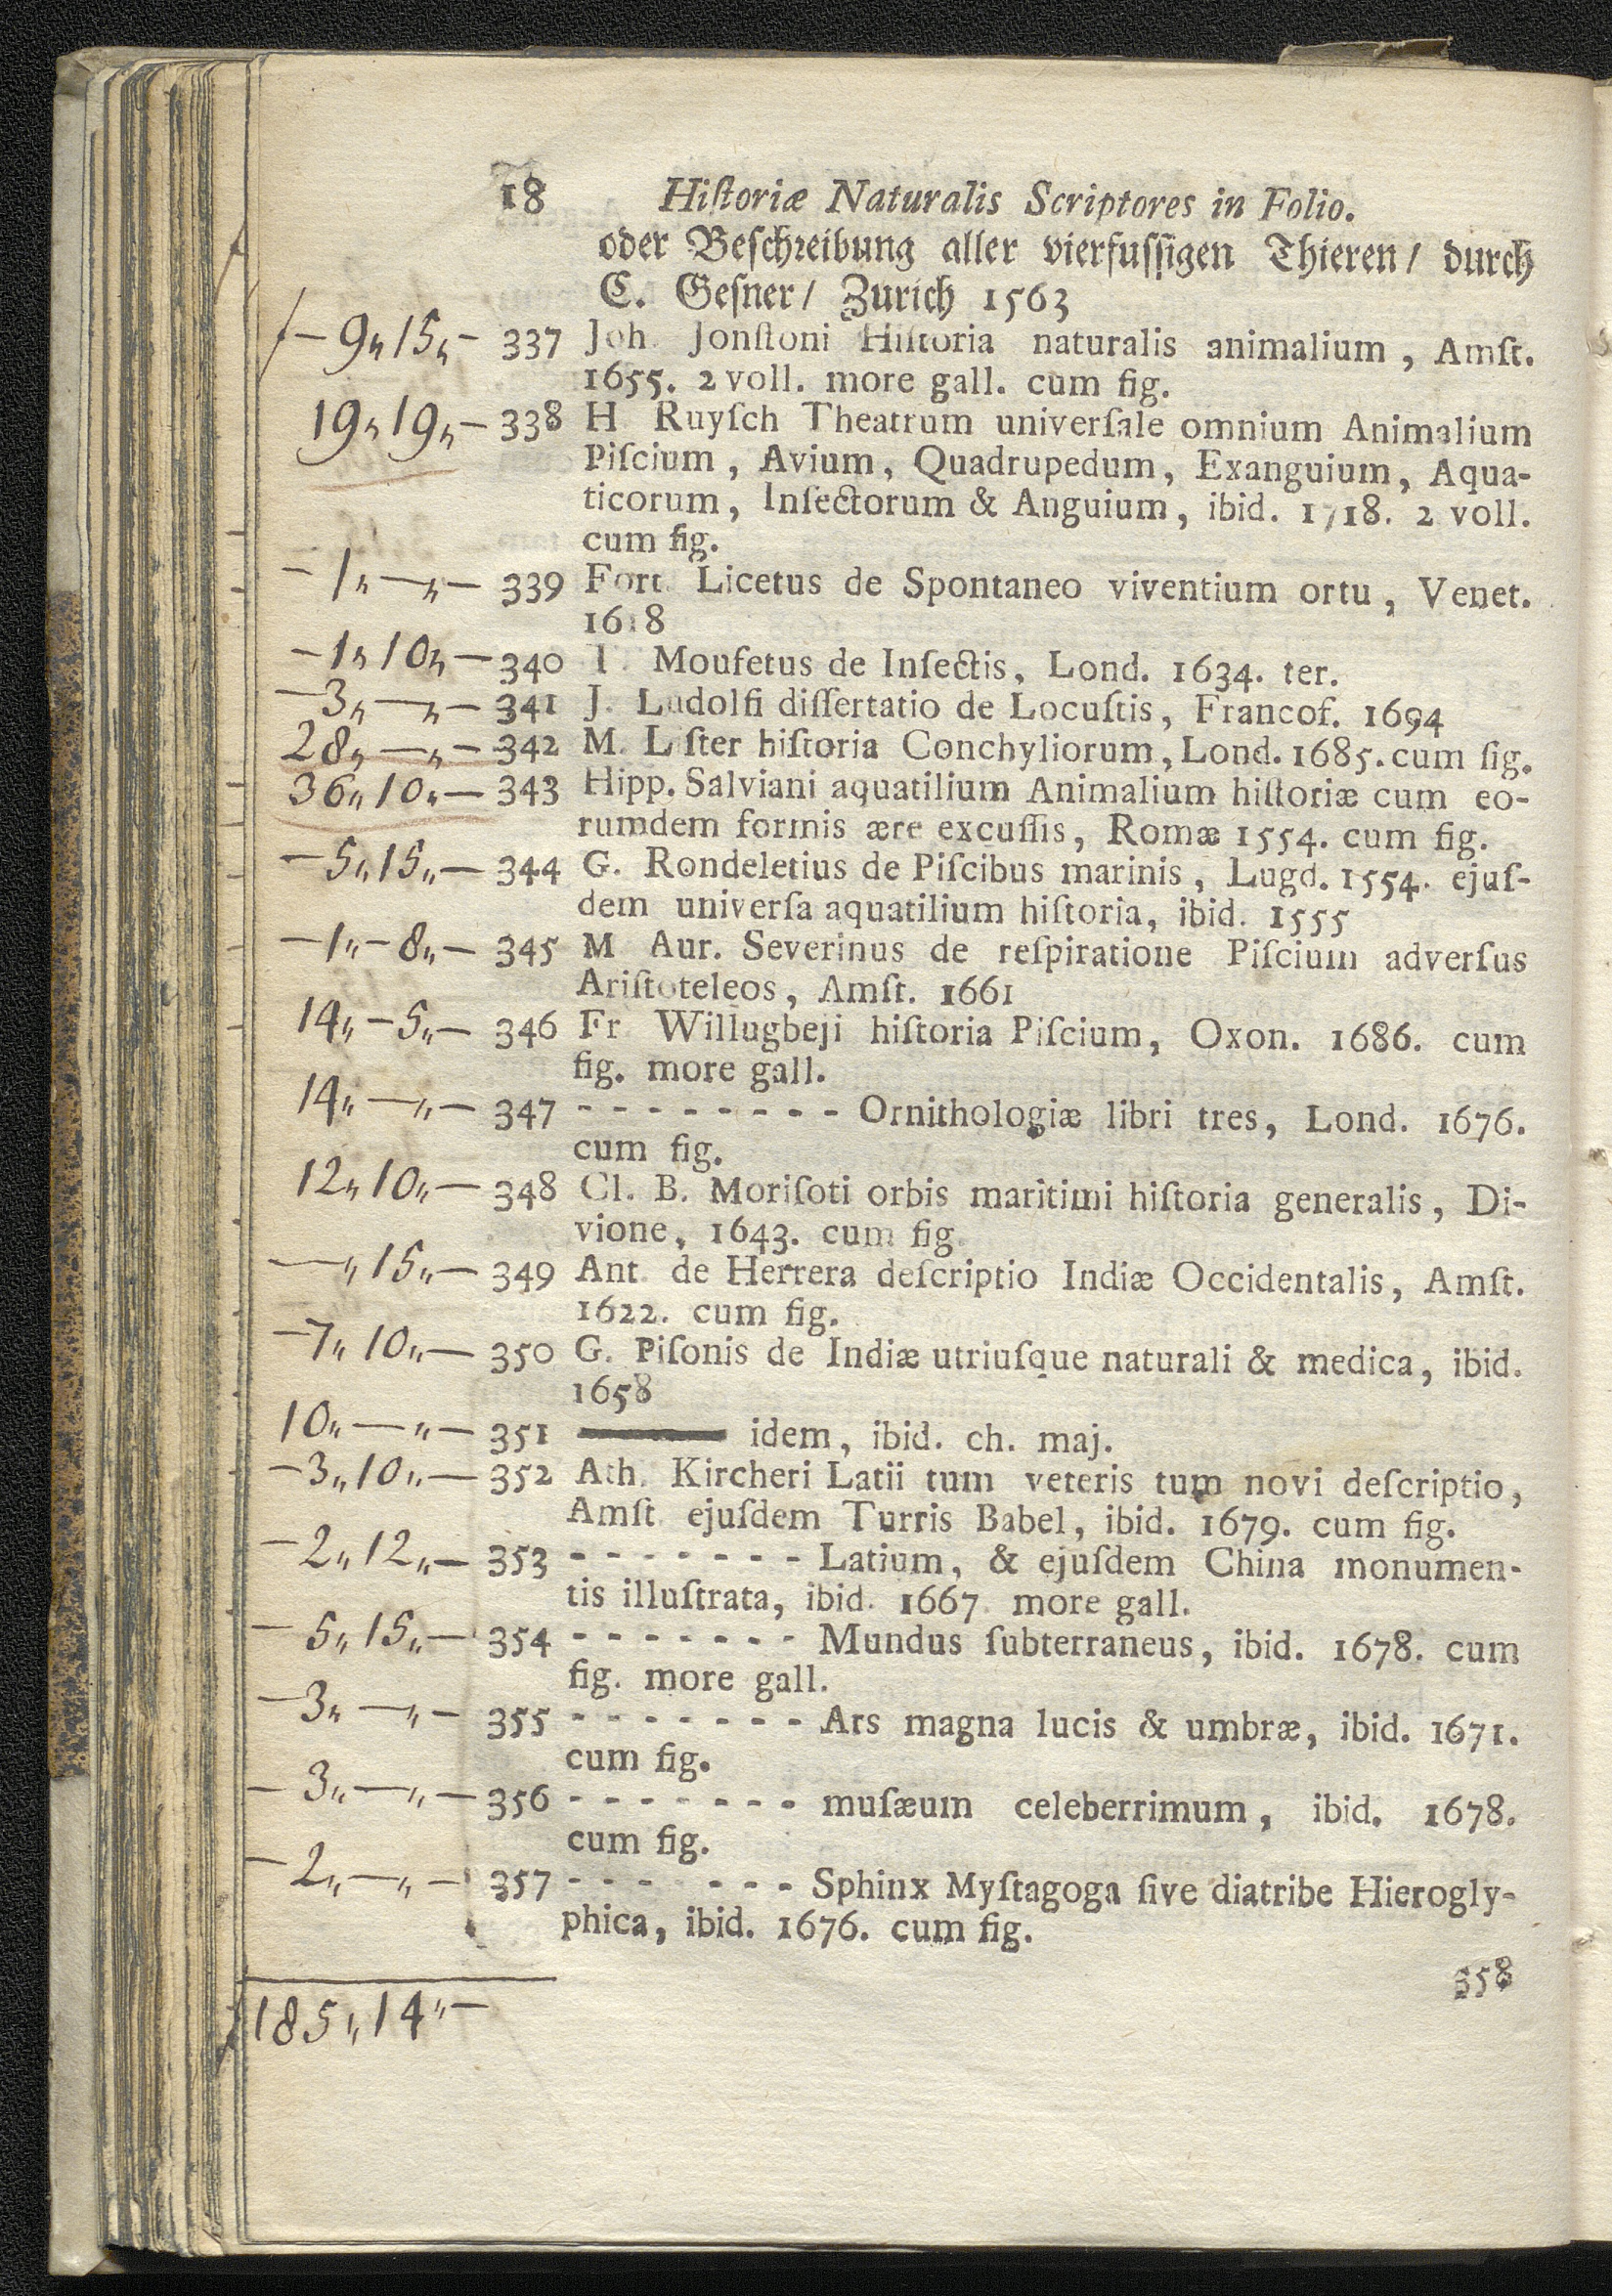 18 Hiſtoriæ Naturalis Scriptores in Folio.
oder Beſchreibung aller vierfuſſigen Thieren / durch
C. Geſner / Zurich 1563
— 9 „ 15 „ — 337 Joh. Jonſtoni Hiſtoria naturalis animalium, Amſt.
1655. 2 voll. more gall. cum fig.
19 „ 19 „ — 338 H Ruyſch Theatrum univerſale omnium Animalium
Piſcium, Avium, Quadrupedum, Exanguium, Aqua-
ticorum, Inſectorum & Anguium, ibid. 1718. 2 voll.
cum fig.
— 1 „ — „ — 339 Fort. Licetus de Spontaneo viventium ortu, Venet.
1618
— 1 „ 10 „ — 340 T. Moufetus de Inſectis, Lond. 1634. ter.
— 3 „ — „ — 341 J. Ludolfi diſſertatio de Locuſtis, Francof. 1694
28 „ — „ — 342 M. Liſter hiſtoria Conchyliorum, Lond. 1685. cum fig.
36 „ 10 „ — 343 Hipp. Salviani aquatilium Animalium hiſtoriæ cum eo-
rumdem formis ære excuſſis, Romæ 1554. cum fig.
— 5 „ 15 „ — 344 G. Rondeletius de Piſcibus marinis, Lugd. 1554. ejuſ-
dem univerſa aquatilium hiſtoria, ibid. 1555
— 1 „ — 8 „ — 345 M Aur. Severinus de reſpiratione Piſcium adverſus
Ariſtoteleos, Amſt. 1661
14 „ — 5 „ — 346 Fr Willugbeji hiſtoria Piſcium, Oxon. 1686. cum
fig. more gall.
14 „ — „ — 347 - - - - - - - - Ornithologiæ libri tres, Lond. 1676.
cum fig.
12 „ 10 „ — 348 Cl. B. Moriſoti orbis maritimi hiſtoria generalis, Di-
vione, 1643. cum fig.
— „ 15 „ — 349 Ant. de Herrera deſcriptio Indiæ Occidentalis, Amſt.
1622. cum fig.
— 7 „ 10 „ — 350 G. Piſonis de Indiæ utriuſque naturali & medica, ibid.
1658
10 „ — „ — 351 ——— idem, ibid. ch. maj.
— 3 „ 10 „ — 352 Ath. Kircheri Latii tum veteris tum novi deſcriptio,
Amſt. ejuſdem Turris Babel, ibid. 1679. cum fig.
— 2 „ 12 „ — 353 - - - - - - - Latium, & ejuſdem China monumen-
tis illuſtrata, ibid. 1667. more gall.
— 5 „ 15 „ — 354 - - - - - - - Mundus ſubterraneus, ibid. 1678. cum
fig. more gall.
— 3 „ — „ — 355 - - - - - - - Ars magna lucis & umbræ, ibid. 1671.
cum fig.
— 3 „ — „ — 356 - - - - - - - muſæum celeberrimum, ibid. 1678.
cum fig.
— 2 „ — „ — 357 - - - - - - Sphinx Myſtagoga ſive diatribe Hierogly-
phica, ibid. 1676. cum fig.
358
185 „ 14 „ —